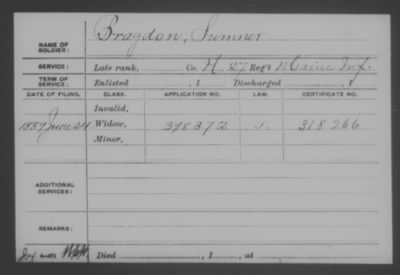 NAME OF SOLDIER: Bragdon, Sumner
SERVICE: Late rank, Co. H, 27 Reg't Maine Inf.
TERM OF SERVICE: Enlisted , 1 Discharged , 1
DATE OF FILING. CLASS. APPLICATION NO. LAW. CERTIFICATE NO.
Invalid,
1889 June 24 Widow, 398372 318266
Minor,
ADDITIONAL SERVICES:
REMARKS:
Died , 1 , at